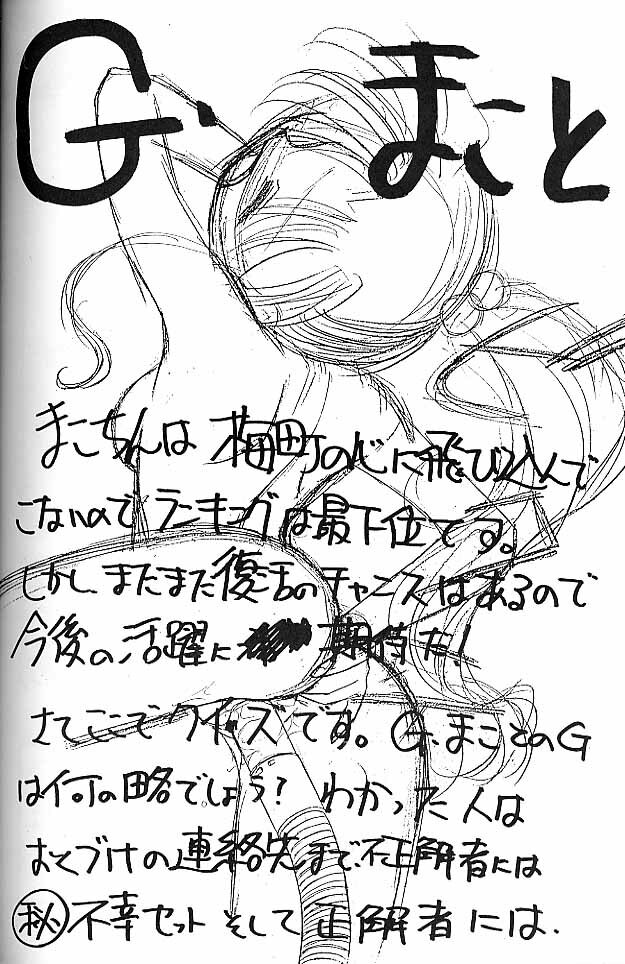 G.まこと
まこちんは 梅町の心に飛び込んで
こないので ランキングは最下位です。
しかし、まだまだ復活のチャンスはあるので
今後の活躍に 期待だ!
さてここでクイズです。G.まことのG
は何の略でしょう? わかった人は
おくづけの連絡先まで、不正解者には
㊙不幸セット そして正解者には、